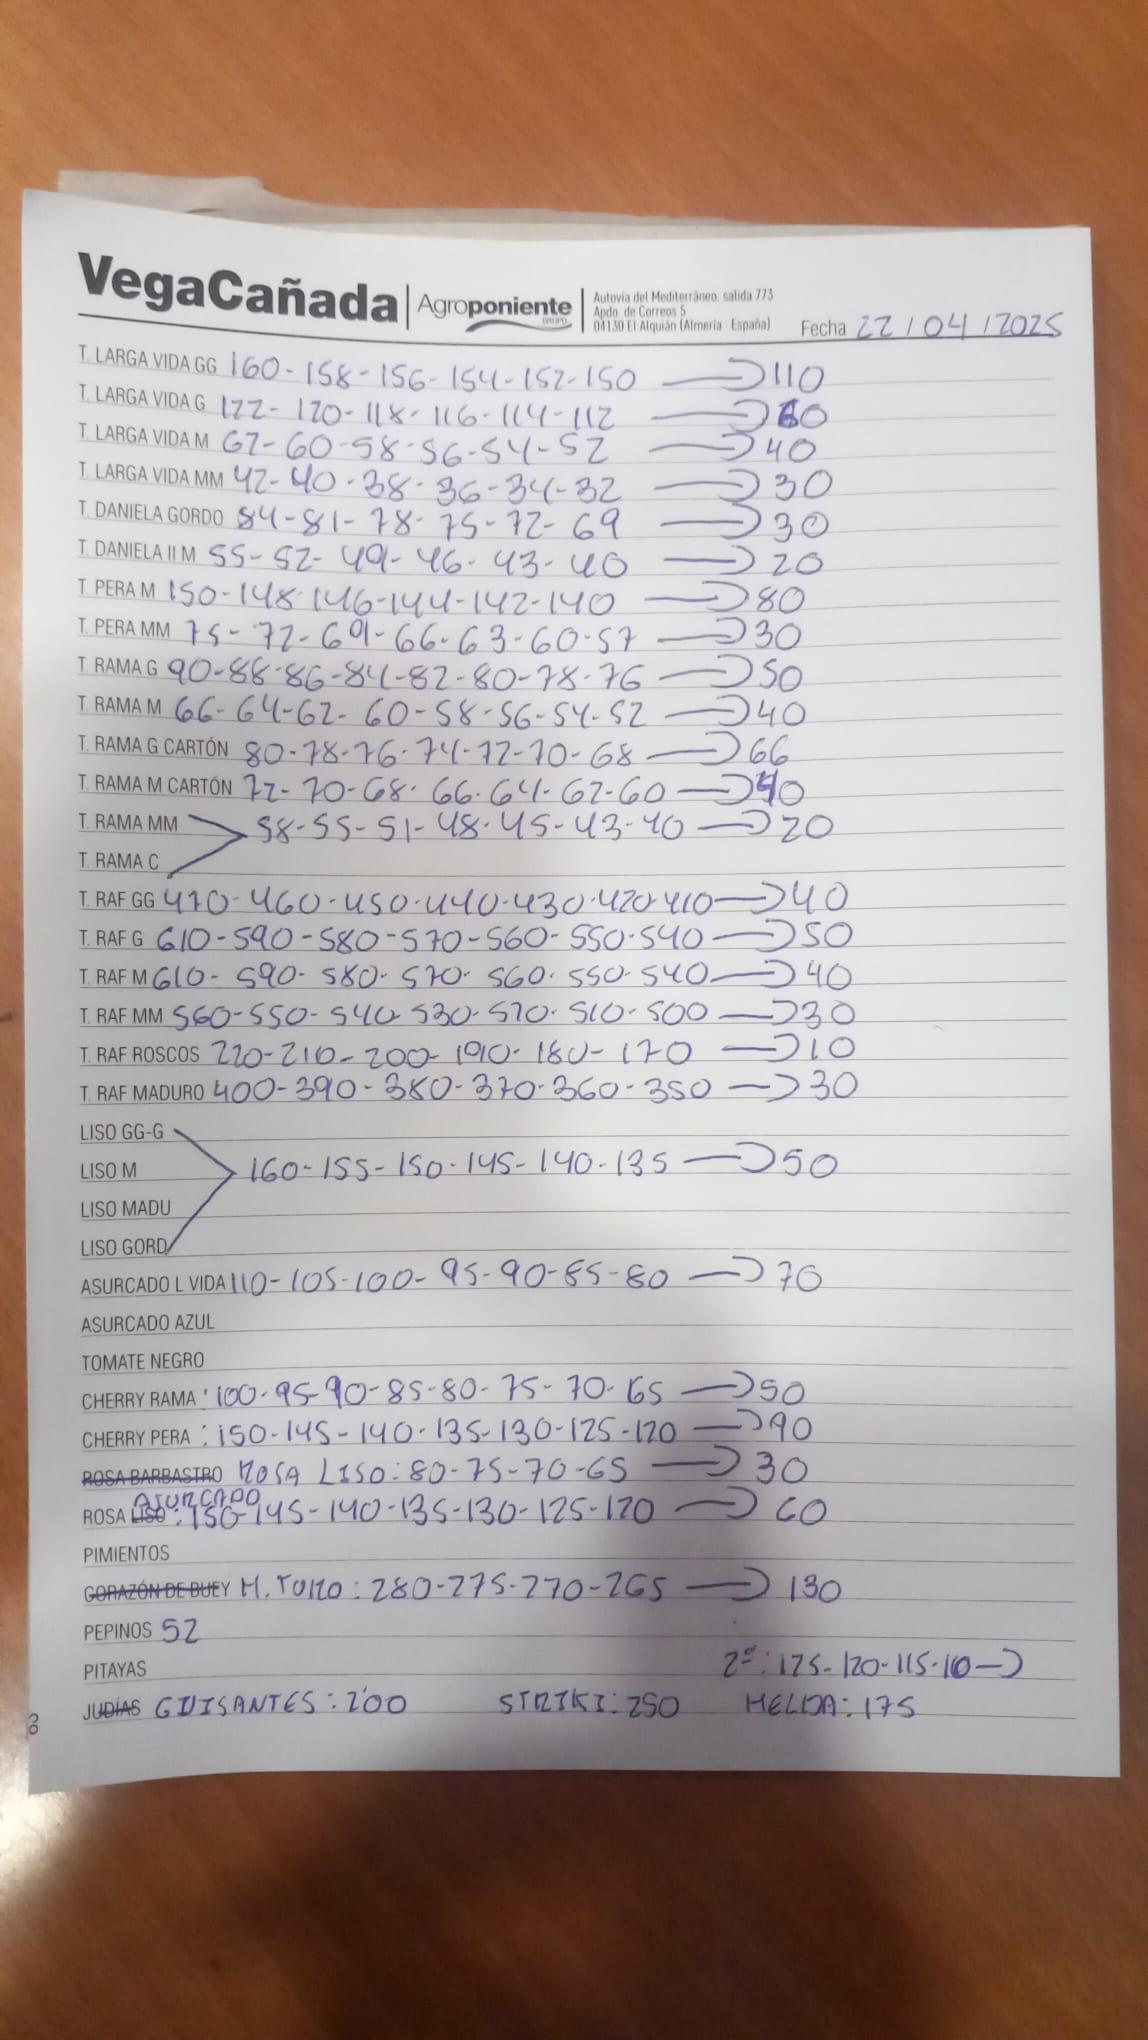 VegaCañada | Agroponiente GRUPO
Autovía del Mediterráneo, salida 773
Apdo. de Correos 5
04130 El Alquián (Almería - España)
Fecha 22/04/2025
T. LARGA VIDA GG 160-158-156-154-152-150 → 110
T. LARGA VIDA G 122-120-118-116-114-112 → 60
T. LARGA VIDA M 62-60-58-56-54-52 → 40
T. LARGA VIDA MM 42-40-38-36-34-32 → 30
T. DANIELA GORDO 84-81-78-75-72-69 → 30
T. DANIELA II M 55-52-49-46-43-40 → 20
T. PERA M 150-148-146-144-142-140 → 80
T. PERA MM 75-72-69-66-63-60-57 → 30
T. RAMA G 90-88-86-84-82-80-78-76 → 50
T. RAMA M 66-64-62-60-58-56-54-52 → 40
T. RAMA G CARTÓN 80-78-76-74-72-70-68 → 66
T. RAMA M CARTÓN 72-70-68-66-64-62-60 → 40
T. RAMA MM 58-55-51-48-45-43-40 → 20
T. RAMA C
T. RAF GG 470-460-450-440-430-420-410 → 40
T. RAF G 610-590-580-570-560-550-540 → 50
T. RAF M 610-590-580-570-560-550-540 → 40
T. RAF MM 560-550-540-530-520-510-500 → 30
T. RAF ROSCOS 220-210-200-190-180-170 → 10
T. RAF MADURO 400-390-380-370-360-350 → 30
LISO GG-G
LISO M 160-155-150-145-140-135 → 50
LISO MADU
LISO GORD
ASURCADO L VIDA 110-105-100-95-90-85-80 → 70
ASURCADO AZUL
TOMATE NEGRO
CHERRY RAMA: 100-95-90-85-80-75-70-65 → 50
CHERRY PERA: 150-145-140-135-130-125-120 → 90
ROSA BARBASTRO ROSA LISO: 80-75-70-65 → 30
ROSA LISO ASURCADO: 150-145-140-135-130-125-120 → 60
PIMIENTOS
CORAZÓN DE BUEY M. TORO: 280-275-270-265 → 130
PEPINOS 52
PITAYAS 2ª: 125-120-115-110 →
JUDÍAS GUISANTES: 2'00 STRIKI: 250 HELDA: 175